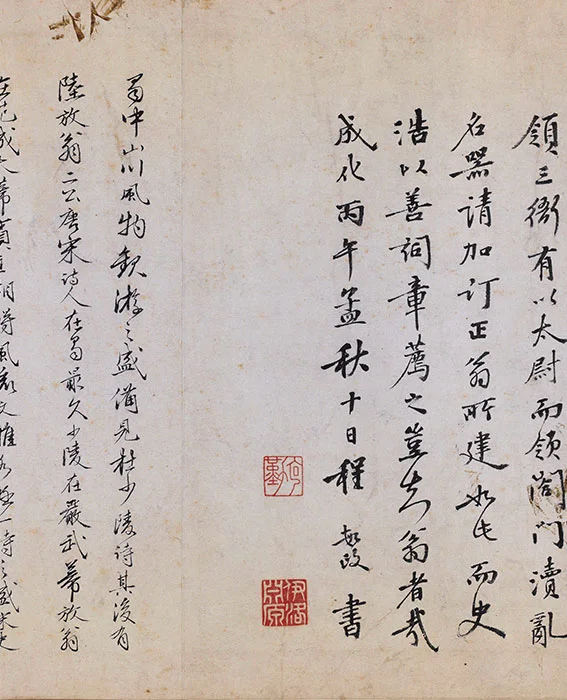 領三衙有以太尉而領閤門瀆亂
名器請加訂正翁所建如此而史
浩以善詞章薦之豈知翁者哉
成化丙午孟秋十日程敏政書
伊洛
蜀中山川風物歡游之盛備見杜少陵詩其後有
陸放翁二公唐宋詩人在蜀最久少陵在嚴武幕放翁
在范成大幕賓主相得風流文雅